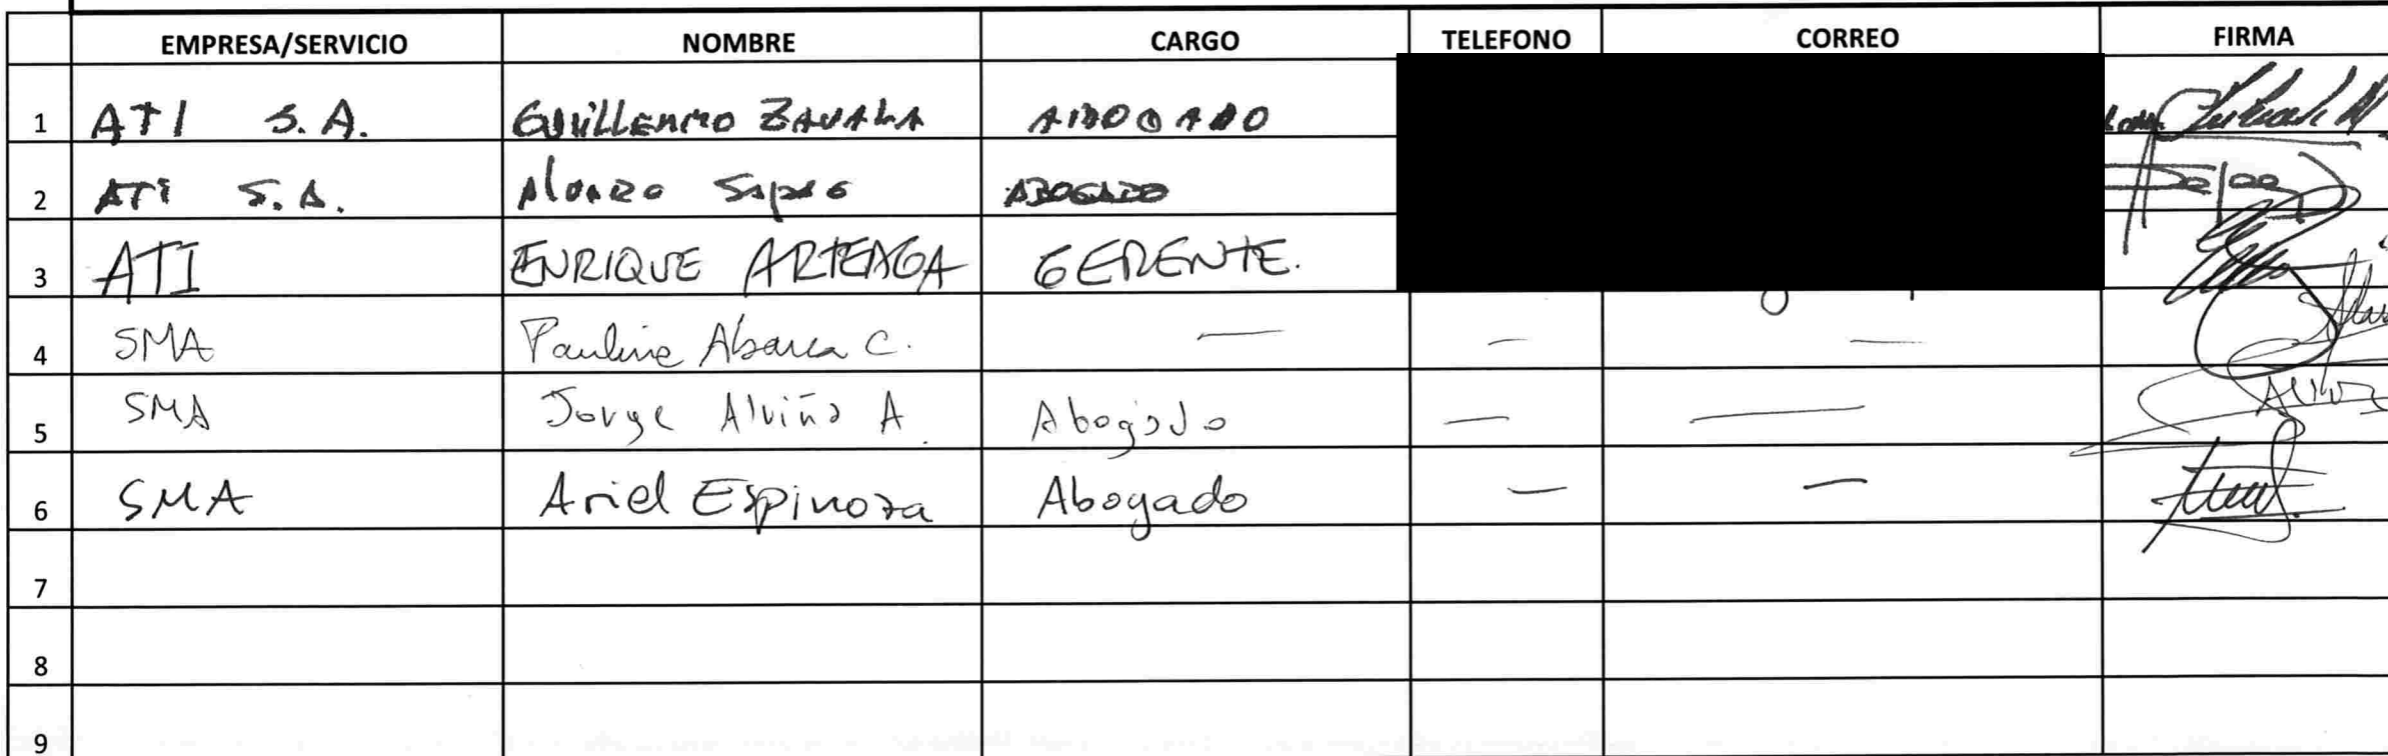 EMPRESA/SERVICIO NOMBRE CARGO TELEFONO CORREO FIRMA
1 ATI S.A. GUILLERMO ZAVALA ABOGADO
2 ATI S.A. ABOGADO
3 ATI ENRIQUE ARTEAGA GERENTE.
4 SMA Pauline Abarca C. — — —
5 SMA Jorge Alviña A. Abogado — —
6 SMA Ariel Espinoza Abogado — —
7
8
9